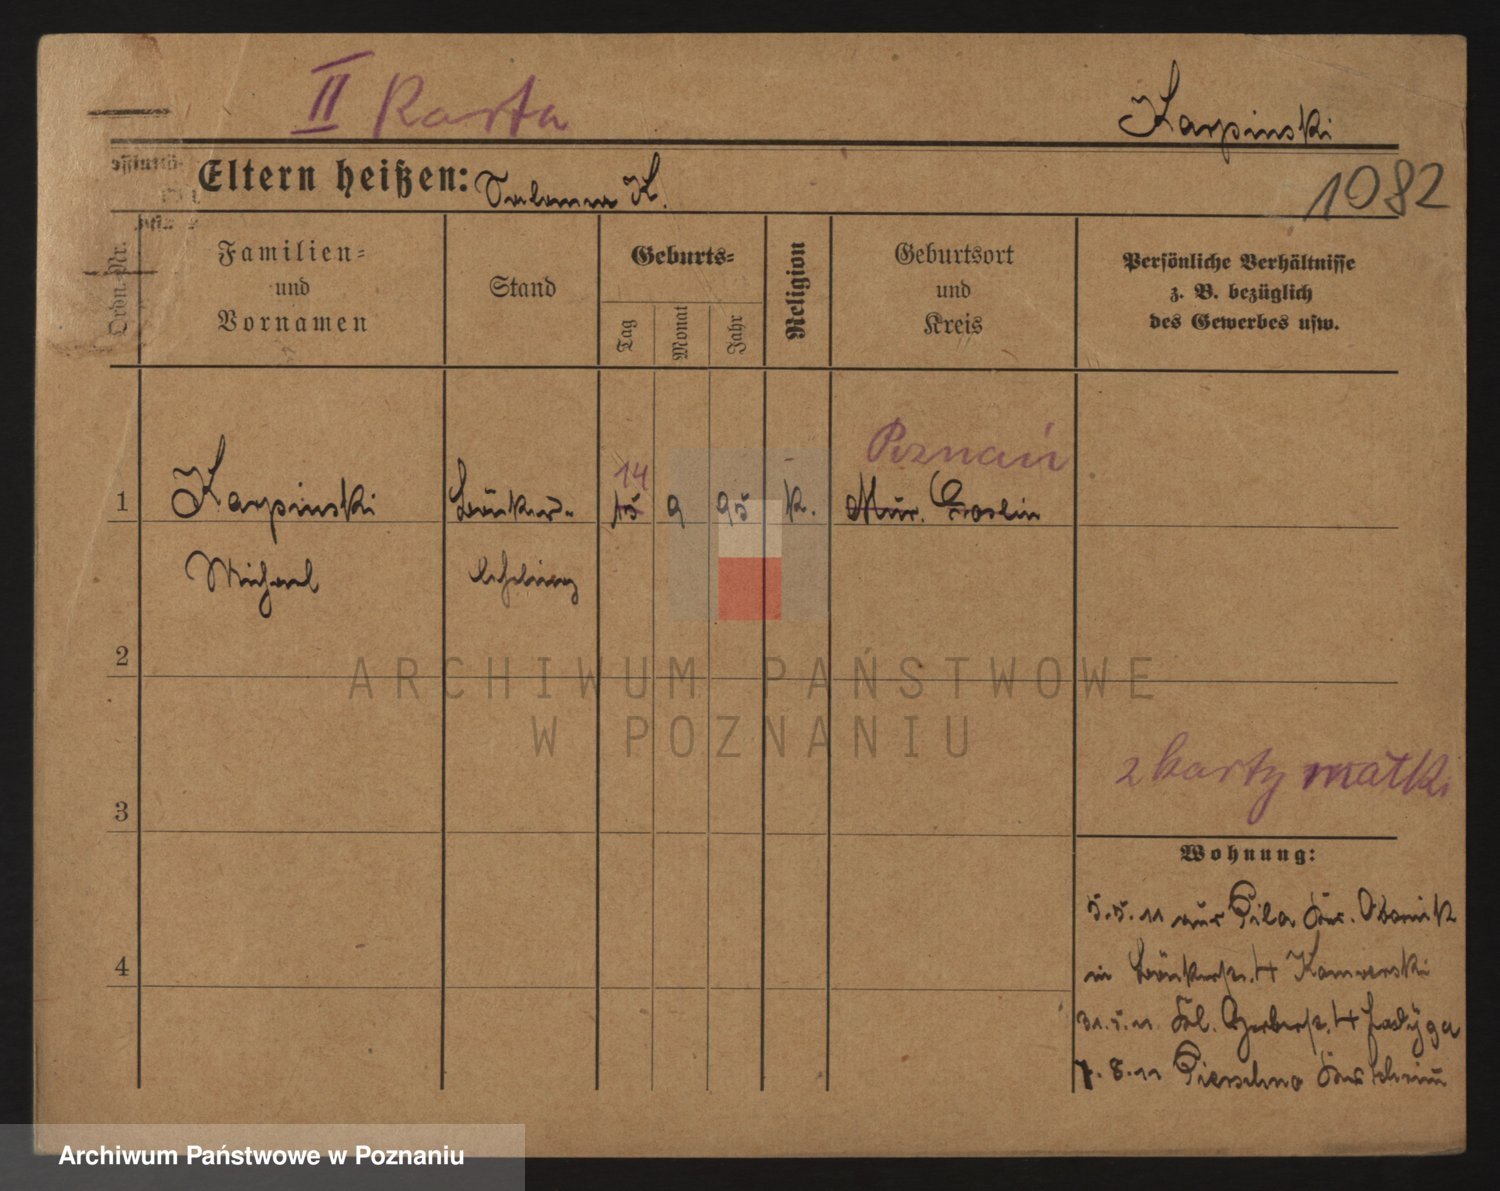 II Karta
Karpinski
Eltern heißen: Salomea K.
1082
Ordn.-Nr.
Familien-
und
Vornamen
Stand
Geburts-
Tag
Monat
Jahr
Religion
Geburtsort
und
Kreis
Persönliche Verhältnisse
z. B. bezüglich
des Gewerbes usw.
Poznań
14
1 Karpinski Bäcker- 15 9 95 k. Mur. Goslin
Michael lehrling
2
ARCHIWUM PAŃSTWOWE
W POZNANIU
z karty matki
3
Wohnung:
5.5.11 aus Pila Kr. Obornik
in Bäckerstr. 4
4
31.5.11 Kl. Gerberstr. 4
7.8.11
Archiwum Państwowe w Poznaniu